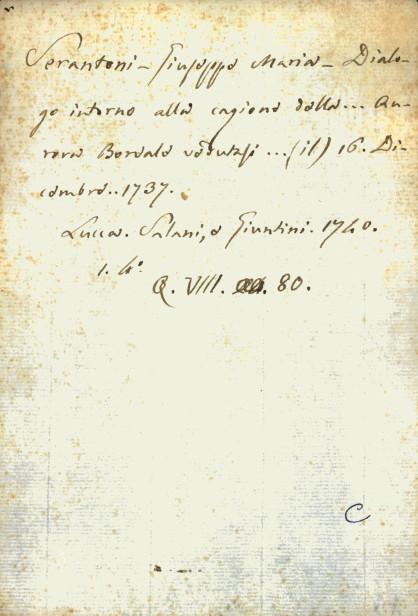 Serantoni - Giuseppe Maria - Dialo-
go intorno alla cagione della... Au-
rora Boreale vedutasi ... (il) 16. Di-
cembre.. 1737.
Lucca. Salani, e Giuntini. 1740.
1. 4º
Q. VIII. 80.
C